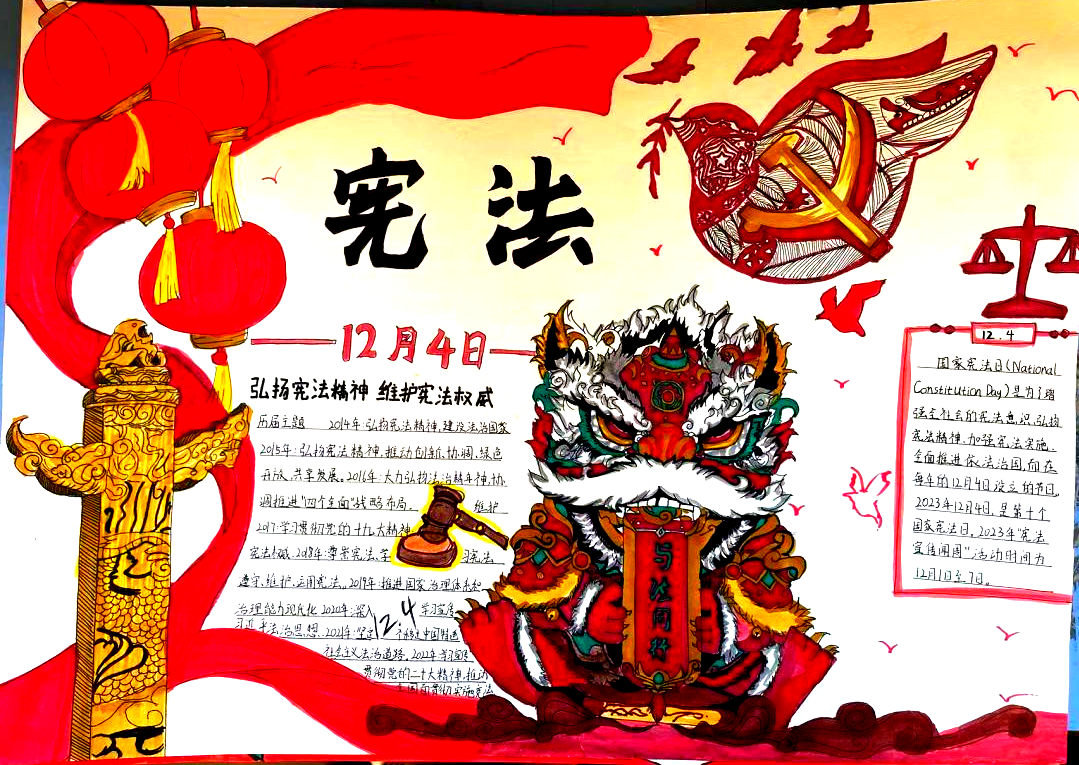 宪法
12月4日
弘扬宪法精神 维护宪法权威
历届主题 2014年:弘扬宪法精神,建设法治国家
2015年:弘扬宪法精神,推动创新、协调、绿色
开放、共享发展。2016年:大力弘扬法治精神,协
调推进"四个全面"战略布局。 维护
2017:学习贯彻党的十九大精神
宪法权威 2018年:尊崇宪法、学 习宪法
遵守、维护、运用宪法。2019年:推进国家治理体系和
治理能力现代化 2020年:深入 学习宣传
习近平法治思想. 2021年:坚定 中国特色
12.4
社会主义法治道路. 2022年 学习宣传
贯彻党的二十大精神,推动
全面贯彻实施宪法
与法同行
12.4
国家宪法日(National
Constitution Day)是为了增
强全社会的宪法意识、弘扬
宪法精神、加强宪法实施、
全面推进依法治国,而在
每年的12月4日设立的节日。
2023年12月4日,是第十个
国家宪法日。2023年"宪法
宣传周"活动时间为
12月1日至7日。